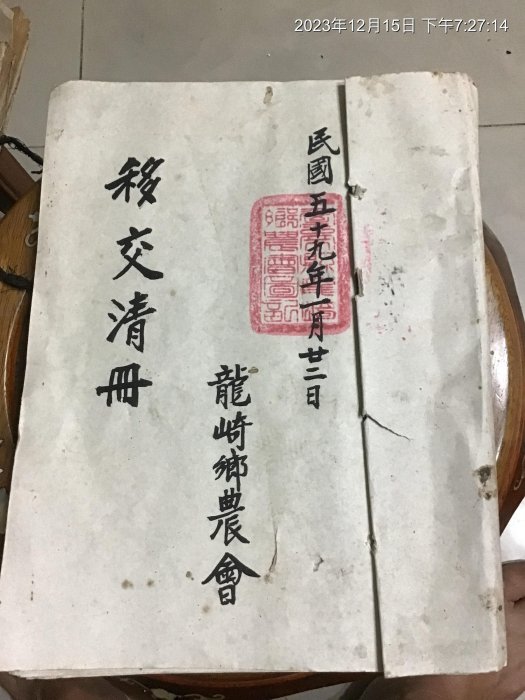 2023年12月15日 下午7:27:14
民國五十九年一月廿二日
龍崎鄉農會
移交清冊